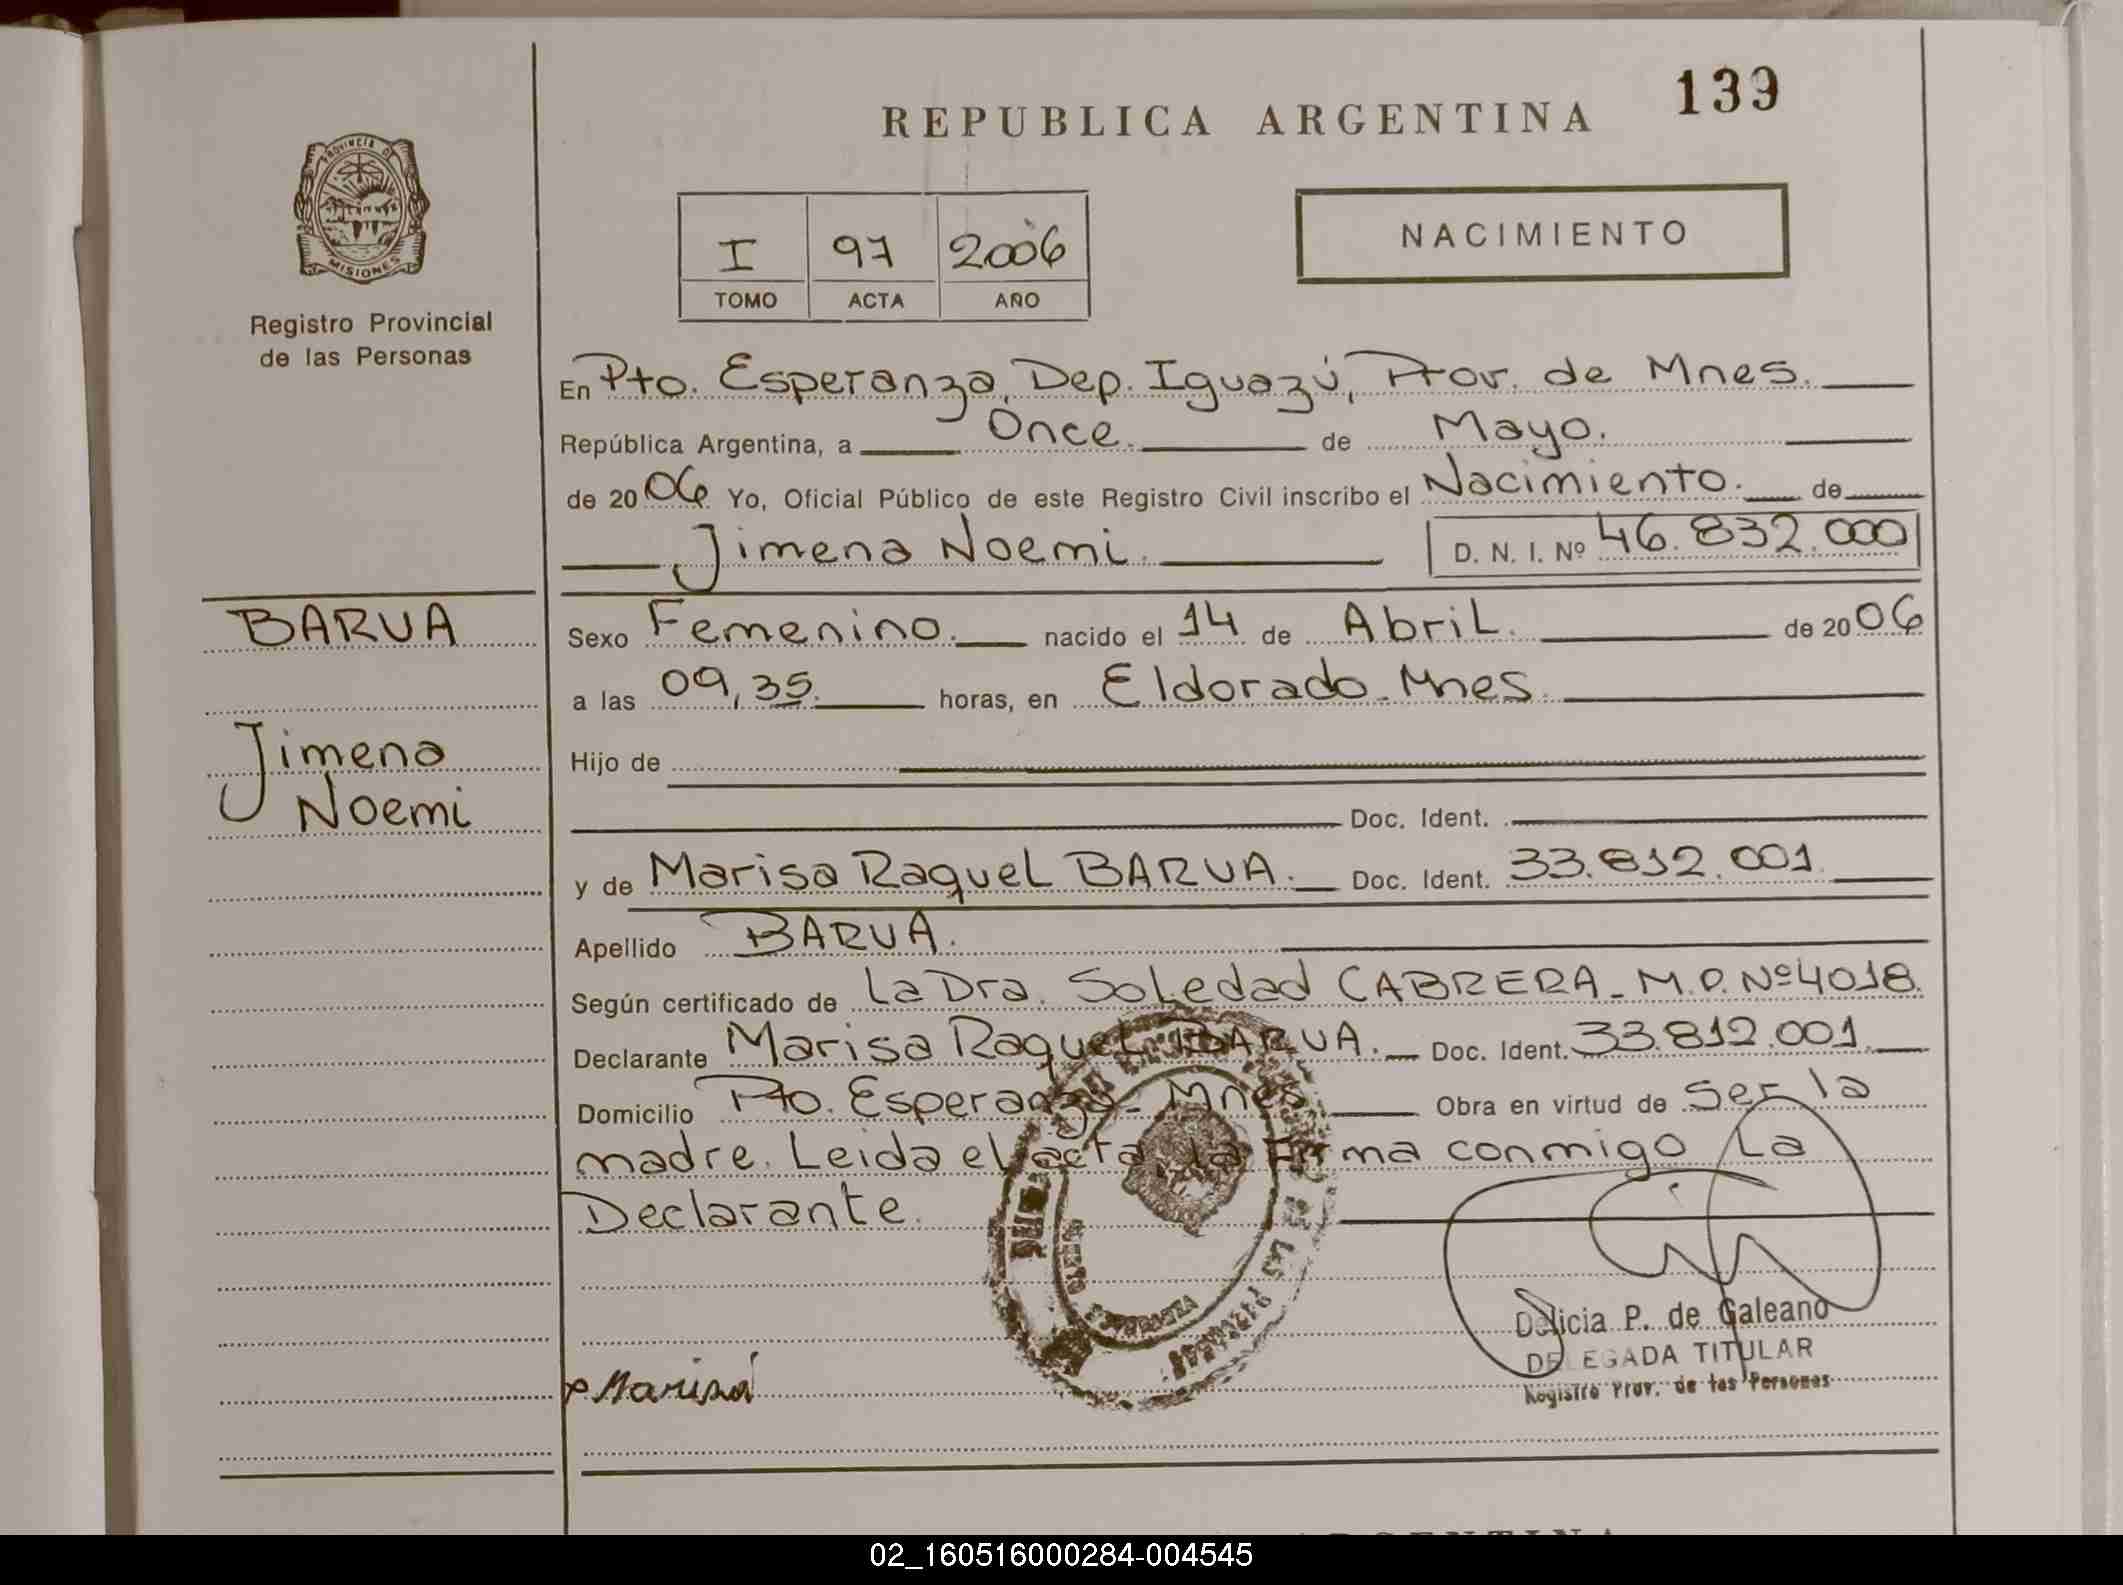 139
REPUBLICA ARGENTINA
PROVINCIA DE
MISIONES
Registro Provincial
de las Personas
I 97 2006
TOMO ACTA AÑO
NACIMIENTO
En Pto. Esperanza, Dep. Iguazú, Prov. de Mnes.
República Argentina, a Once. de Mayo.
de 2006 Yo, Oficial Público de este Registro Civil inscribo el Nacimiento. de
Jimena Noemi. D. N. I. Nº 46.832.000
BARUA
Jimena
Noemi
Sexo Femenino. nacido el 14 de Abril. de 2006
a las 09,35. horas, en Eldorado-Mnes.
Hijo de
Doc. Ident.
y de Marisa Raquel BARUA. Doc. Ident. 33.812.001.
Apellido BARUA.
Según certificado de La Dra. Soledad CABRERA-M.P. Nº 4018.
Declarante Marisa Raquel BARUA. Doc. Ident. 33.812.001.
Domicilio Pto. Esperanza-Mnes. Obra en virtud de Ser la
madre. Leida el acta, la firma conmigo La
Declarante.
DE LAS PERSONAS
ESPERANZA
Marisa
Delicia P. de Galeano
DELEGADA TITULAR
Registro Prov. de las Personas
ARGENTINA
02_160516000284-004545